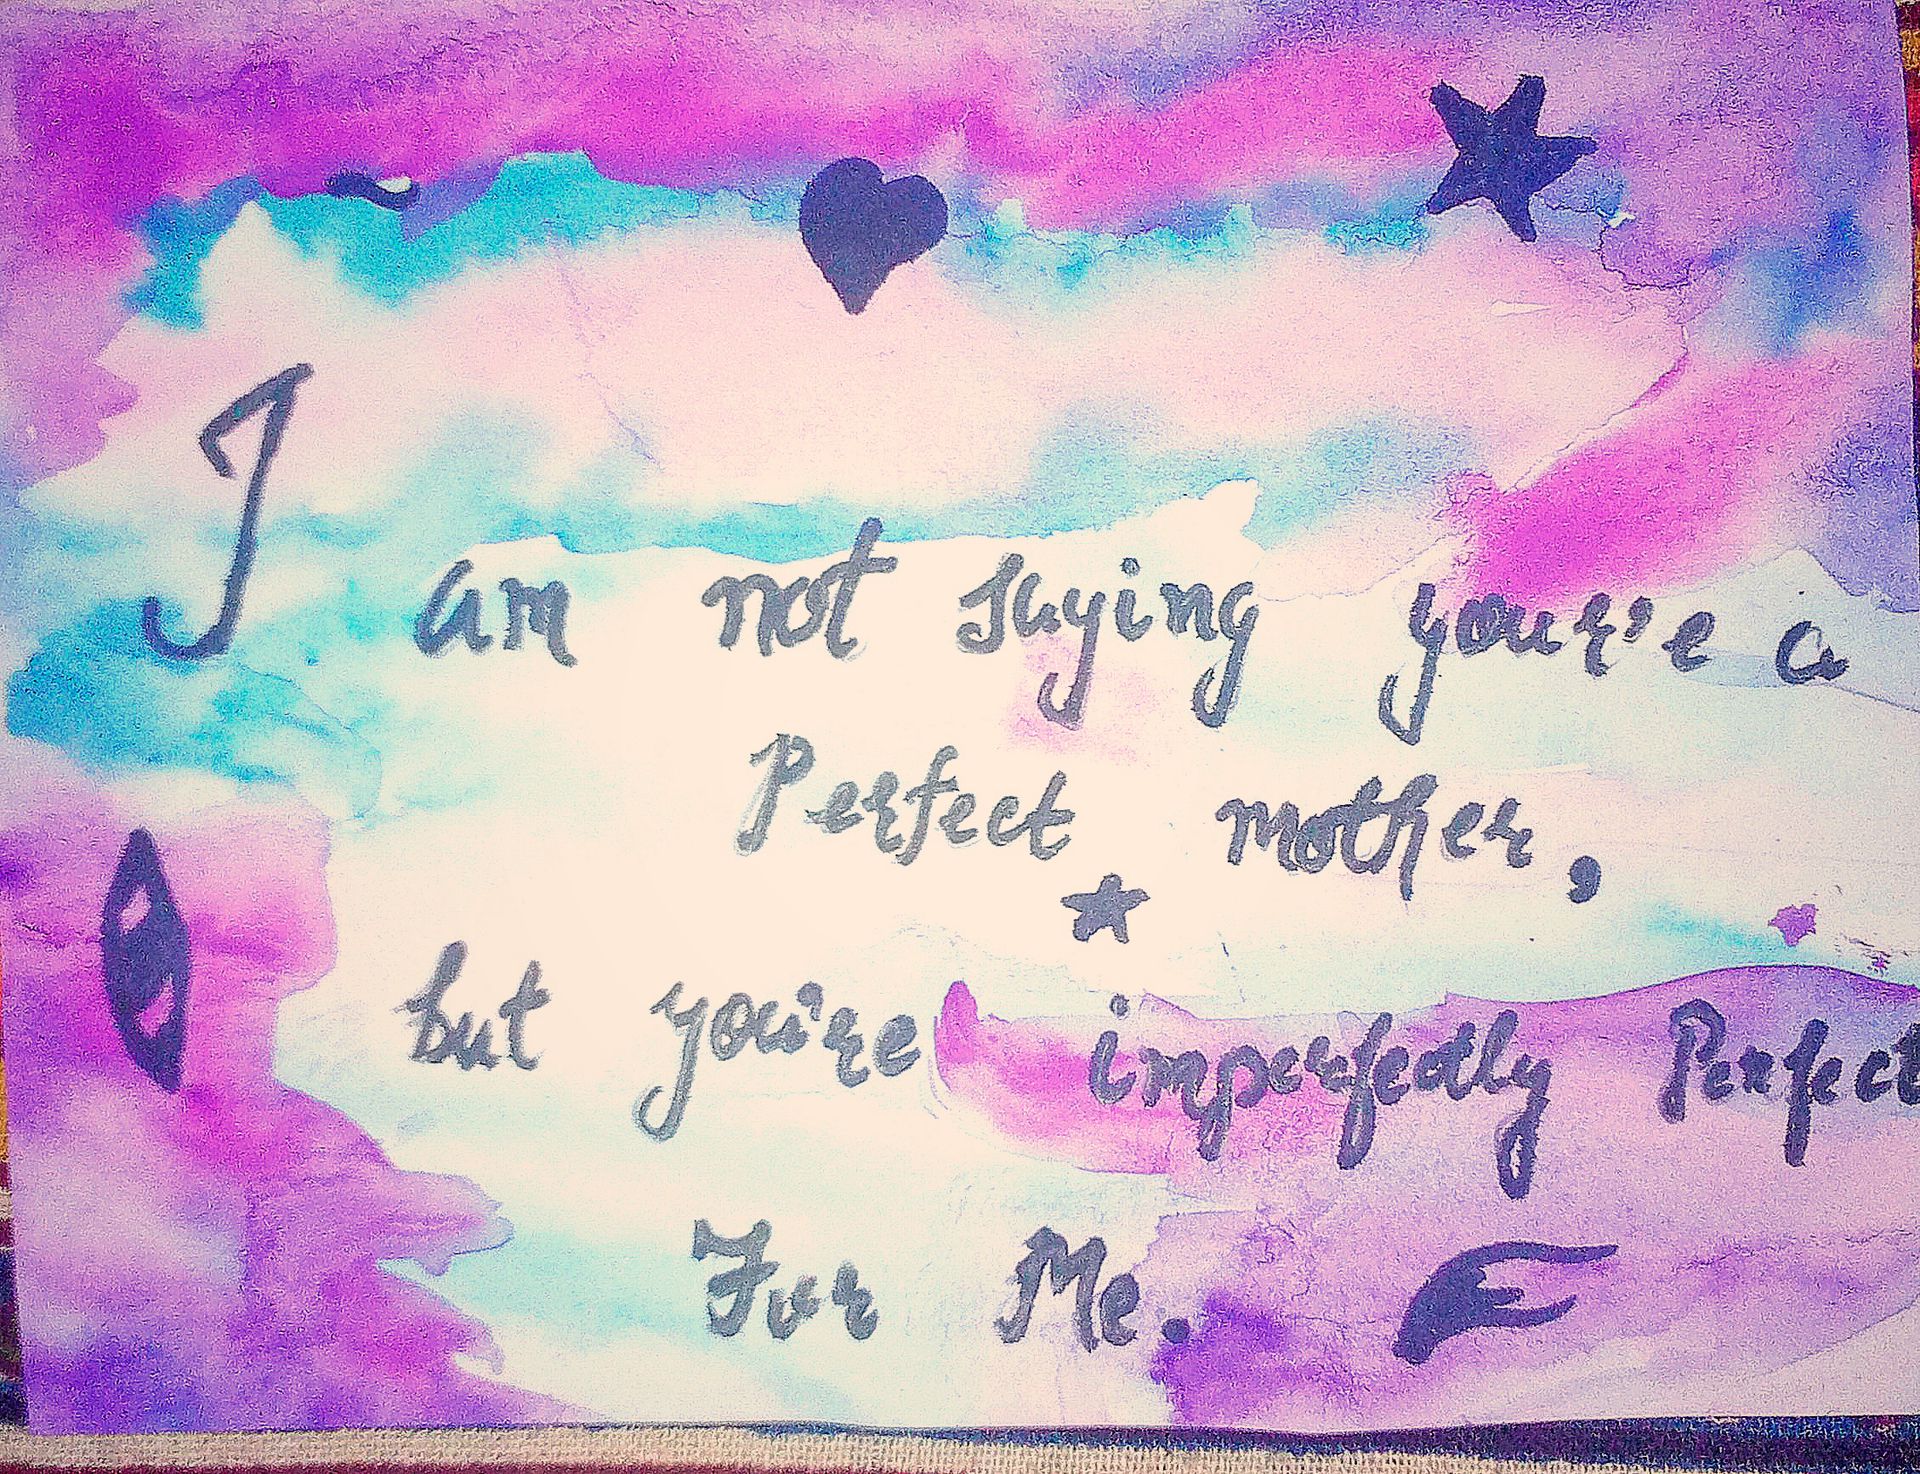 I am not saying your'e a
Perfect mother,
but you're imperfectly Perfect
For Me.